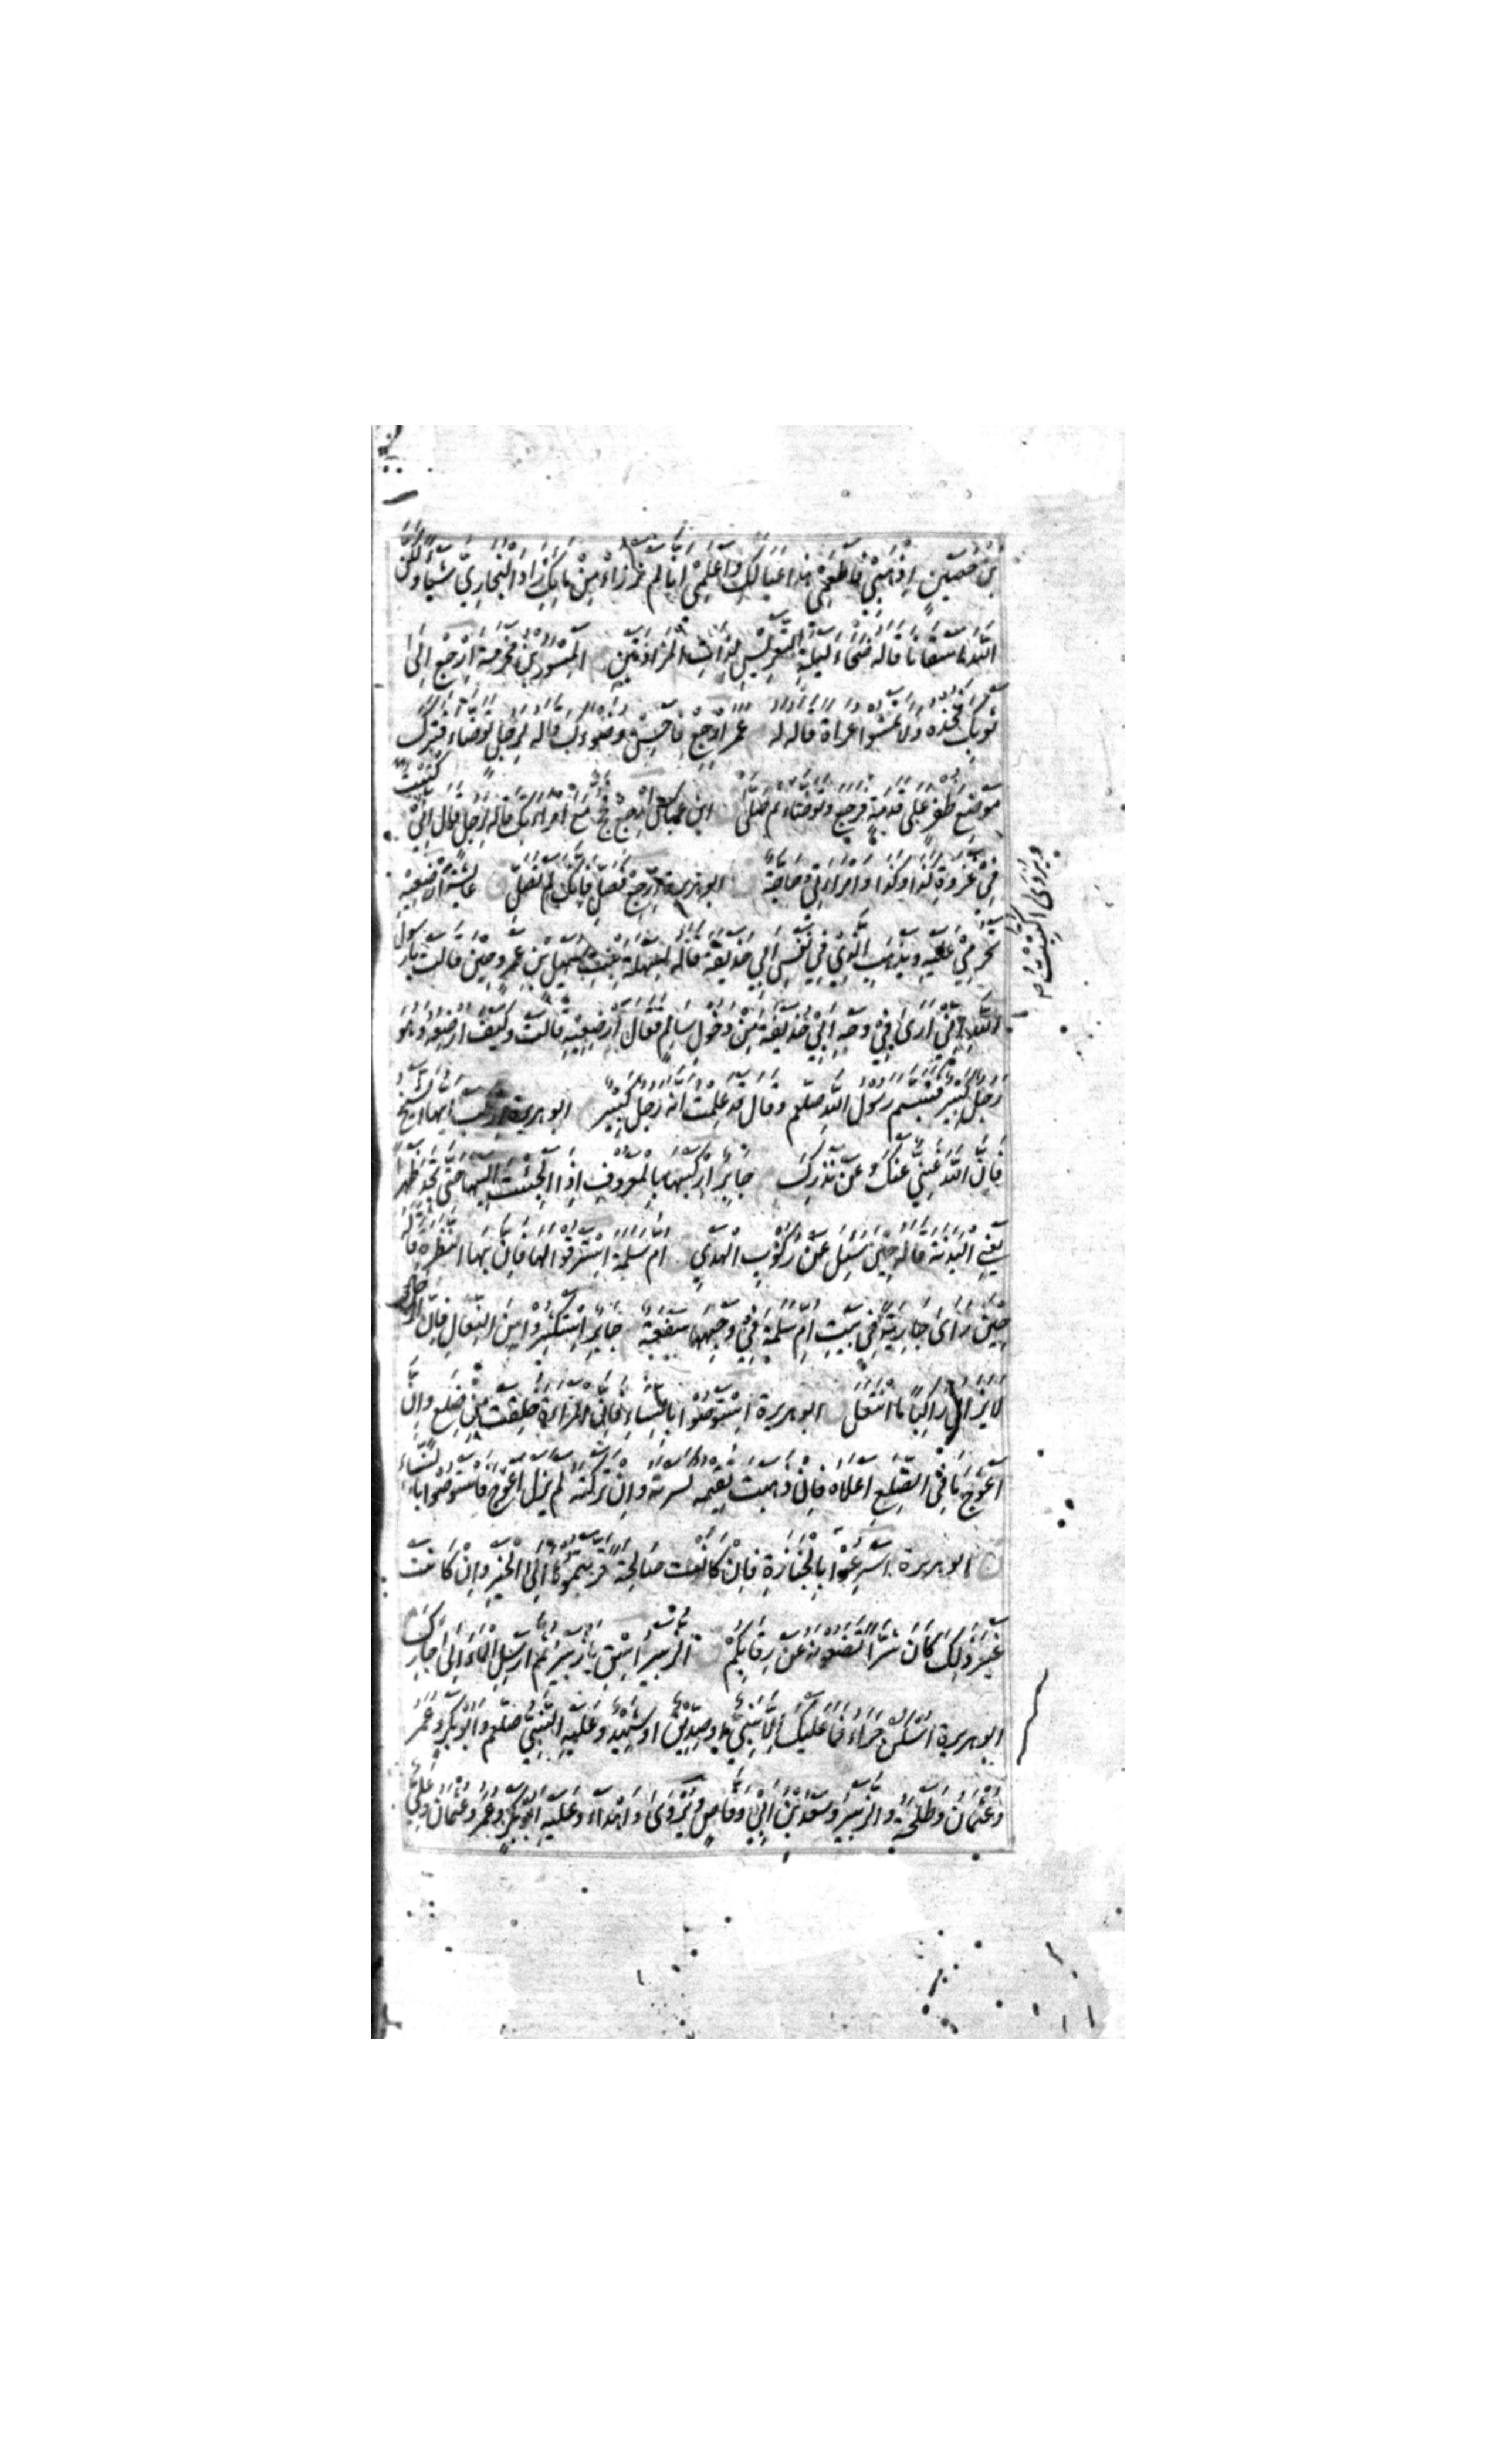 بْنُ حُصَيْنٍ اِذْهَبِيْ فَاَطْعِمِيْ هٰذَا عِيَالَكِ وَاعْلَمِيْ اَنَّا لَمْ نَرْزَاْ مِنْ مَائِكِ زَادَ الْبُخَارِيُّ شَيْئًا وَلٰكِنَّ
اللّٰهَ سَقَانَا قاله ضُحَاءَ لَيْلَةِ التَّعْرِيْسِ لِذَاتِ الْمَزَادَتَيْنِ الْمِسْوَرُ بْنُ مَخْرَمَةَ اِرْجِعْ اِلٰى
ثَوْبِكَ فَخُذْهُ وَلَا تَمْشُوْا عُرَاةً قاله له عمر اِرْجِعْ فَاَحْسِنْ وُضُوْءَكَ قاله لِرَجُلٍ تَوَضَّاءَ فَتَرَكَ
مَوْضِعَ ظُفُرٍ عَلٰى قَدَمِهٖ فَرَجَعَ وَتَوَضَّاءَ ثُمَّ صَلّٰى ابن عباس اِرْجِعْ حُجَّ مَعَ امْرَاَتِكَ قاله لِرَجُلٍ قَالَ اِنِّيْ كُتِبْتُ
فِيْ غَزْوَةِ كَذَا وَكَذَا وَامْرَاَتِيْ حَاجَّةٌ ابو هريرة اِرْجِعْ فَصَلِّ فَاِنَّكَ لَمْ تُصَلِّ عايشة اَرْضِعِيْهِ
تَحْرُمِيْ عَلَيْهِ وَيَذْهَبِ الَّذِيْ فِيْ نَفْسِ اَبِيْ حُذَيْفَةَ قاله لِسَهْلَةَ بِنْتِ سُهَيْلِ بْنِ عَمْرٍو حِيْنَ قَالَتْ يَا رَسُوْلَ
اللّٰهِ اِنِّيْ اَرٰى فِيْ وَجْهِ اَبِيْ حُذَيْفَةَ مِنْ دُخُوْلِ سَالِمٍ فَقَالَ اَرْضِعِيْهِ قَالَتْ وَكَيْفَ اُرْضِعُهٗ وَهُوَ
رَجُلٌ كَبِيْرٌ فَتَبَسَّمَ رَسُوْلُ اللّٰهِ صلعم وَقَالَ قَدْ عَلِمْتُ اَنَّهٗ رَجُلٌ كَبِيْرٌ ابو هريرة اِرْكَبْ اَيُّهَا الشَّيْخُ
فَاِنَّ اللّٰهَ غَنِيٌّ عَنْكَ وَعَنْ نَذْرِكَ جابر اِرْكَبْهَا بِالْمَعْرُوْفِ اِذَا اُلْجِئْتَ اِلَيْهَا حَتّٰى تَجِدَ ظَهْرًا
يَعْنِي الْبَدَنَةَ قاله حِيْنَ سُئِلَ عَنْ رُكُوْبِ الْهَدْيِ ام سلمة اِسْتَرْقُوْا لَهَا فَاِنَّ بِهَا النَّظْرَةَ قاله
حِيْنَ رَاٰى جَارِيَةً فِيْ بَيْتِ اُمِّ سَلَمَةَ فِيْ وَجْهِهَا سَفْعَةٌ جابر اِسْتَكْثِرُوْا مِنَ النِّعَالِ فَاِنَّ الرَّجُلَ
لَا يَزَالُ رَاكِبًا مَا انْتَعَلَ ابو هريرة اِسْتَوْصُوْا بِالنِّسَاءِ فَاِنَّ الْمَرْاَةَ خُلِقَتْ مِنْ ضِلَعٍ وَاِنَّ
اَعْوَجَ مَا فِي الضِّلَعِ اَعْلَاهُ فَاِنْ ذَهَبْتَ تُقِيْمُهٗ كَسَرْتَهٗ وَاِنْ تَرَكْتَهٗ لَمْ يَزَلْ اَعْوَجَ فَاسْتَوْصُوْا بِالنِّسَاءِ
ابو هريرة اَسْرِعُوْا بِالْجَنَازَةِ فَاِنْ كَانَتْ صَالِحَةً قَرَّبْتُمُوْهَا اِلَى الْخَيْرِ وَاِنْ كَانَتْ
غَيْرَ ذٰلِكَ كَانَ شَرًّا تَضَعُوْنَهٗ عَنْ رِقَابِكُمْ الزُّبَيْرُ اِسْقِ يَا زُبَيْرُ ثُمَّ اَرْسِلِ الْمَاءَ اِلٰى جَارِكَ
ابو هريرة اُسْكُنْ حِرَاءُ فَمَا عَلَيْكَ اِلَّا نَبِيٌّ اَوْ صِدِّيْقٌ اَوْ شَهِيْدٌ وَعَلَيْهِ النَّبِيُّ صلعم وَاَبُوْ بَكْرٍ وَعُمَرُ
وَعُثْمَانُ وَطَلْحَةُ وَالزُّبَيْرُ وَسَعْدُ بْنُ اَبِيْ وَقَّاصٍ وَيُرْوٰى اِهْدَاءْ وَعَلَيْهِ اَبُوْ بَكْرٍ وَعُمَرُ وَعُثْمَانُ وَعَلِيٌّ
وَيُرْوٰى اكْتُتِبْتُ